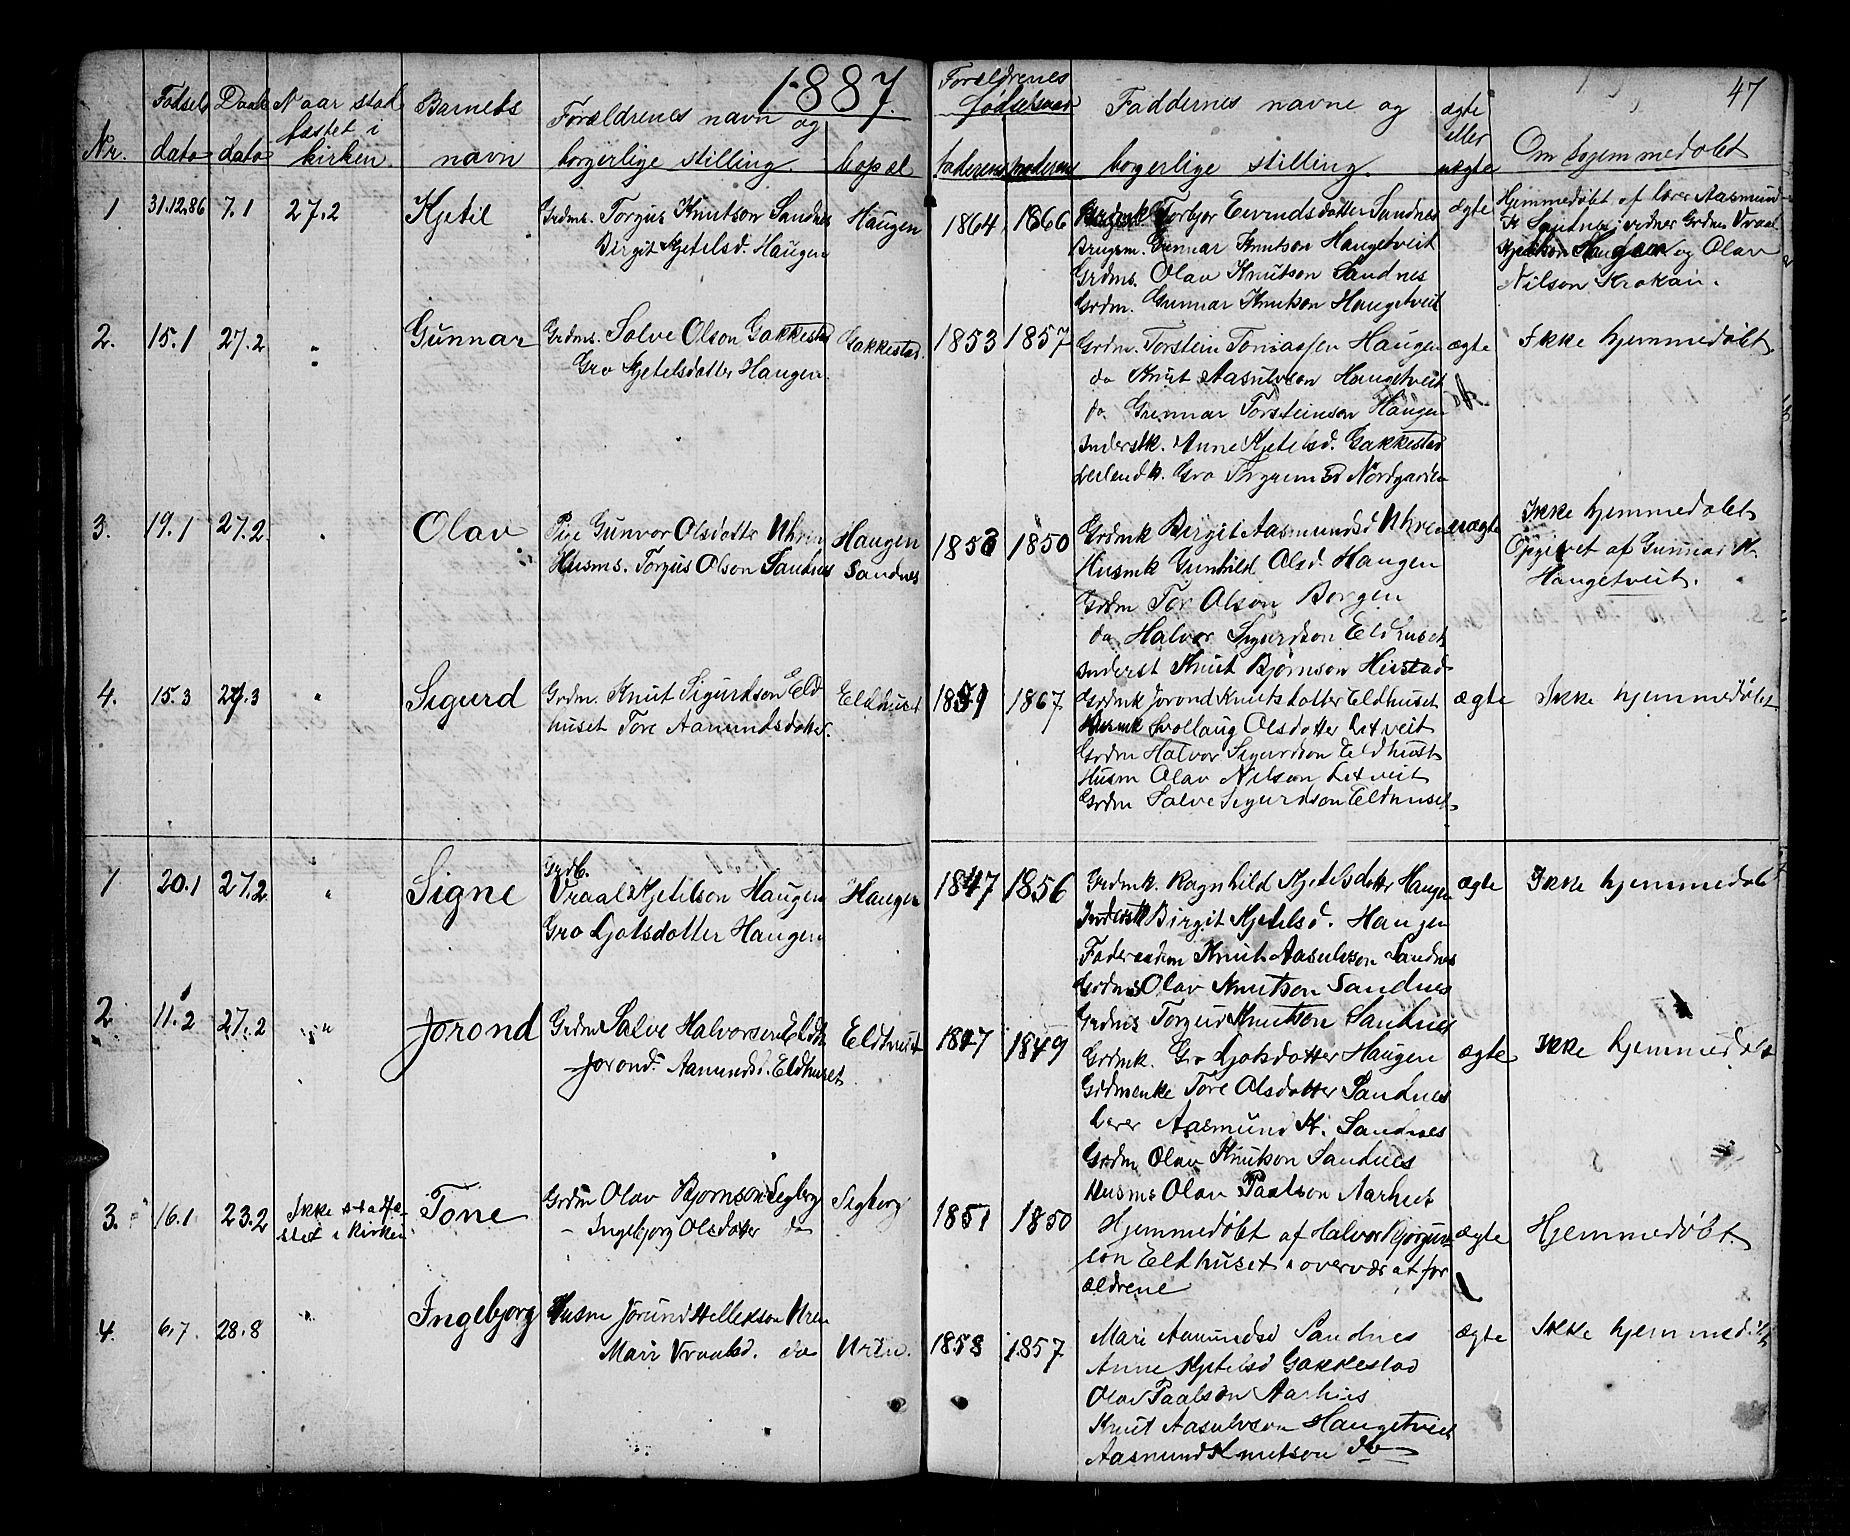 1887.
47
Nr.
Fødsels dato
Daabs dato
Naar stad fæstet i kirken.
Barnets navn
Forældrenes navn og borgerlige stilling.
bopæl
Forældrenes fødselsaar
faderens moderens
Faddernes navne og borgerlige stilling.
ægte eller uægte
Om hjemmedøbt
1 31.12.86 7.1 27.2 Kjetil
Grdms. Torgus Knutson Sandnes
Birgit Kjetelsd. Haugen
Haugen
1864 1866
Grdmk Torbjør Eivindsdotter Sandnes
Brugsm. Gunnar Knutson Haugetveit
Grdms. Olav Knutson Sandnes
Grdm. Gunnar Knutson Haugetveit
ægte
Hjemmedøbt af lærer Aasmund
K. Sandnes; vidner Grdm Vraal
Kjetilson Haugen og Olav
Nilson Krokan.
2. 15.1 27.2 " Gunnar
Grdms. Salve Olson Gakkestad
Gro Kjetelsdotter Haugen.
Gakkestad.
1853 1857
Grdm. Torstein Tomassen Haugen
do Knut Aasulvson Haugetveit
do Gunnar Torsteinson Haugen
Inderstk. Anne Kjetelsd. Gakkestad
Leilendk. Gro Torgrimsd Nordgarden
ægte
Ikke hjemmedøbt.
3. 19.1 27.2 " Olav
Pige Gunvor Olsdotter Uhren
Husms. Torgus Olson Sandnes
Haugen
Sandnes
1853 1850
Grdmk Birgit Aasmundsd Uhren
Husmk Gunhild Olsd. Haugen
Grdm Tor Olson Borgen
do Halvor Sigurdson Eldhuset
Inderst Knut Bjørnson Heistad
uægte
Ikke hjemmedøbt
Opgivet af Gunnar K.
Haugetveit.
4. 15.3 27.3 " Sigurd
Grdm. Knut Sigurdson Eld
huset Tore Aamundsdotter.
Eldhuset
1859 1867
Grdmk Jorond Knutsdotter Eldhuset
Husmk Svollaug Olsdotter Litveit
Grdm Halvor Sigurdson Eldhuset
Husm Olav Nilson Litveit
Grdm Salve Sigurdson Eldhuset
ægte
Ikke hjemmedøbt
1 20.1 27.2 " Signe
Grdb.
Vraal Kjetelson Haugen
Gro Ljotsdotter Haugen
Haugen
1847 1856
Grdmk. Ragnhild Kjetelsdotter Haugen
Inderstk Birgit Kjetelsd. Haugen
Knut Aasulvson Sandnes
Grdms Olav Knutson Sandnes
ægte
Ikke hjemmedøbt
2 11.2 27.2 " Jorond
Grdm Salve Halvorson Eldh
Jorond Aamundsd. Eldhuset
Eldhuset
1847 1849
Grdms Torgus Knutson Sandnes
Grdmk. Gro Ljotsdotter Haugen
Grdmenke Tore Olsdotter Sandnes
Lærer Aasmund K. Sandnes
Grdm Olav Knutson Sandnes
Husms Olav Paalson Aarhus
ægte
Ikke hjemmedøbt
3. 16.1 23.2
Ikke stadfæ-
stet i kirken.
Tone
Grdm Olav Bjørnson Segberg
– Ingebjørg Olsdotter do
Segberg
1851 1850
Hjemmedøbt af Halvor
son Eldhuset i overvær at for
ældrene
ægte
Hjemmedøbt.
4. 6.7. 28.8 " Ingebjorg
Husm Jørund Hellekson Uren
Mari Vraalsd. do
Uren.
1858 1857
Mari Aamundsd Sandnes
Anne Kjetelsd Gakkestad
Olav Paalson Aarhus
Knut Aasulvson Haugetveit
Aasmund Knutson do
ægte
Ikke hjemmedøbt